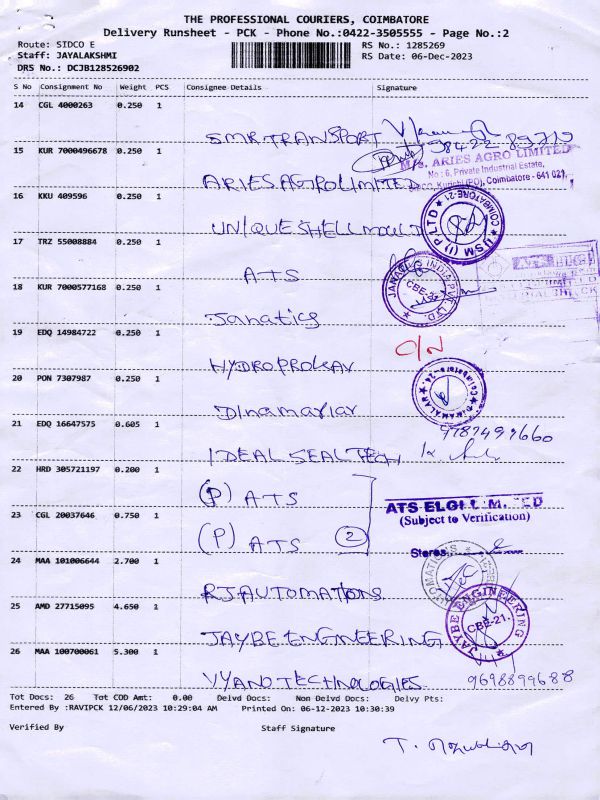 THE PROFESSIONAL COURIERS, COIMBATORE
Delivery Runsheet - PCK - Phone No.:0422-3505555 - Page No.:2
Route: SIDCO E
RS No.: 1285269
Staff: JAYALAKSHMI
RS Date: 06-Dec-2023
DRS No.: DCJB128526902
S No Consignment No Weight PCS Consignee Details Signature
14 CGL 4000263 0.250 1
SMR TRANSPORT
15 KUR 7000496678 0.250 1
M/s. ARIES AGRO LIMITED
No : 6, Private Industrial Estate,
Kurichi (PO), Coimbatore - 641 021.
ARIES AGRO LIMITED
16 KKU 409596 0.250 1
USM (I) P LTD ★ COIMBATORE-21 ★
UNIQUE SHELL MOULT
17 TRZ 55008884 0.250 1
ATS
JANATICS INDIA PVT. LTD. ★
CBE-21.
18 KUR 7000577168 0.250 1
Janatics
19 EDQ 14984722 0.250 1
C/N
HYDROPROKAV
20 PON 7307987 0.250 1
DINAMALAR ★ Coimbatore-24. ★
Dinamalar
21 EDQ 16647575 0.605 1
9787499660
IDEAL SEAL TECH
22 HRD 305721197 0.200 1
(P) ATS
ATS ELGI LIMITED
(Subject to Verification)
23 CGL 20037646 0.750 1
(P) ATS 2
Stores
24 MAA 101006644 2.700 1
RJ AUTOMATIONS
25 AMD 27715095 4.650 1
JAYBE ENGINEERING ★
CBE-21.
JAYBE ENGINEERING
26 MAA 100700061 5.300 1
VYANO TECHNOLOGIES 9698899688
Tot Docs: 26 Tot COD Amt: 0.00 Delvd Docs: Non Delvd Docs: Delvy Pts:
Entered By :RAVIPCK 12/06/2023 10:29:04 AM Printed On: 06-12-2023 10:30:39
Verified By Staff Signature